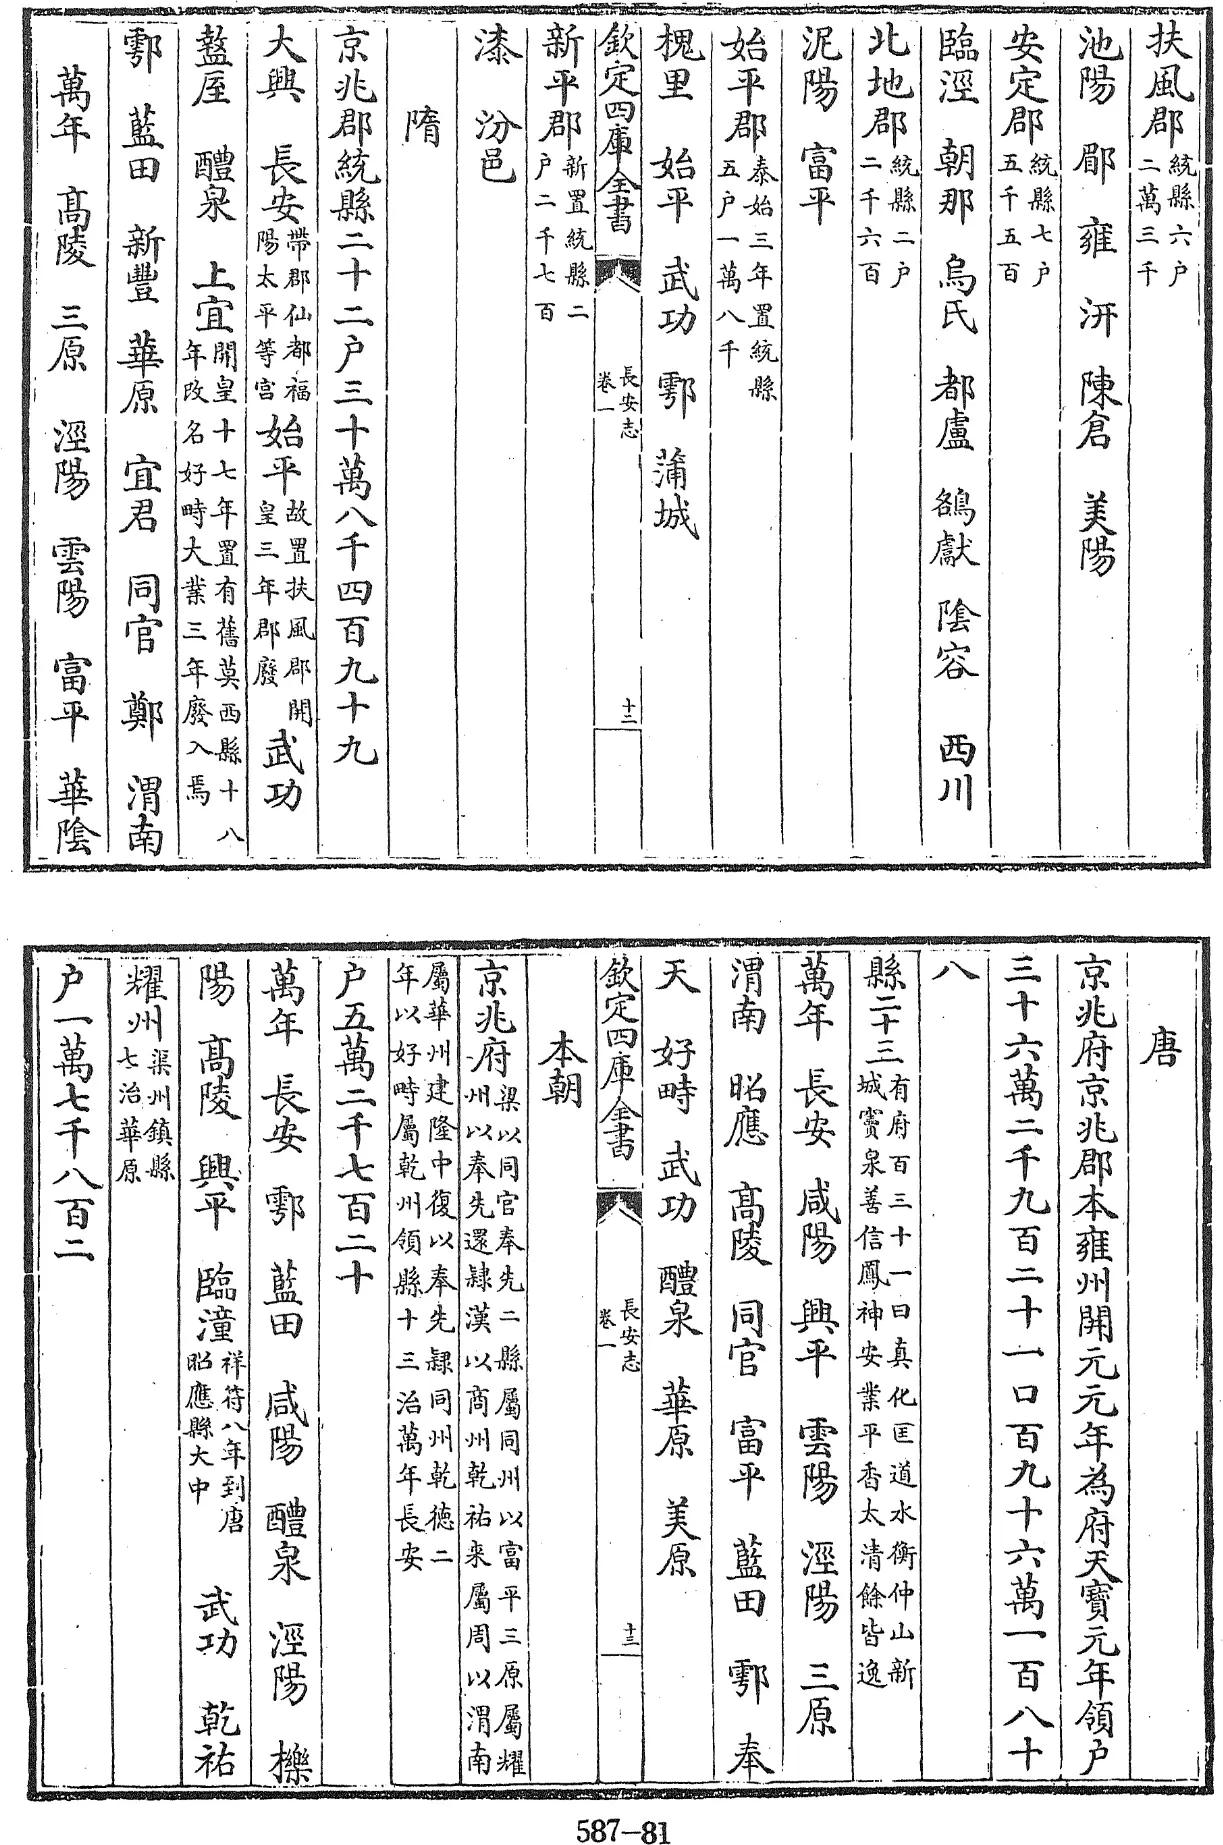 扶風郡統縣六户二萬三千
池陽　郿　雍　汧　陳倉　美陽
安定郡統縣七户五千五百
臨涇　朝那　烏氏　都盧　鶉獻　陰容　西川
北地郡統縣二户二千六百
泥陽　富平
始平郡泰始三年置統縣五户一萬八千
槐里　始平　武功　鄠　蒲城
欽定四庫全書　長安志卷一　十二
新平郡新置統縣二户二千七百
漆　汾邑
隋
京兆郡統縣二十二户三十萬八千四百九十九
大興　長安帶郡仙都福陽太平等宫　始平故置扶風郡開皇三年郡廢　武功
盩厔　醴泉　上宜開皇十七年置有舊莫西縣十八年改名好畤大業三年廢入焉
鄠　藍田　新豐　華原　宜君　同官　鄭　渭南
萬年　高陵　三原　涇陽　雲陽　富平　華陰
唐
京兆府京兆郡本雍州開元元年為府天寶元年領户
三十六萬二千九百二十一口百九十六萬一百八十
八
縣二十三有府百三十一曰真化匡道水衡仲山新城竇泉善信鳳神安業平香太清餘皆逸
萬年　長安　咸陽　興平　雲陽　涇陽　三原
渭南　昭應　高陵　同官　富平　藍田　鄠　奉
天　好畤　武功　醴泉　華原　美原
欽定四庫全書　長安志卷一　十三
本朝
京兆府梁以同官奉先二縣屬同州以富平三原屬耀州以奉先還隸漢以商州乾祐来屬周以渭南
屬華州建隆中復以奉先隸同州乾德二年以好畤屬乾州領縣十三治萬年長安
户五萬二千七百二十
萬年　長安　鄠　藍田　咸陽　醴泉　涇陽　櫟
陽　高陵　興平　臨潼祥符八年到唐昭應縣大中　武功　乾祐
耀州渠州鎮縣七治華原
户一萬七千八百二
587-81